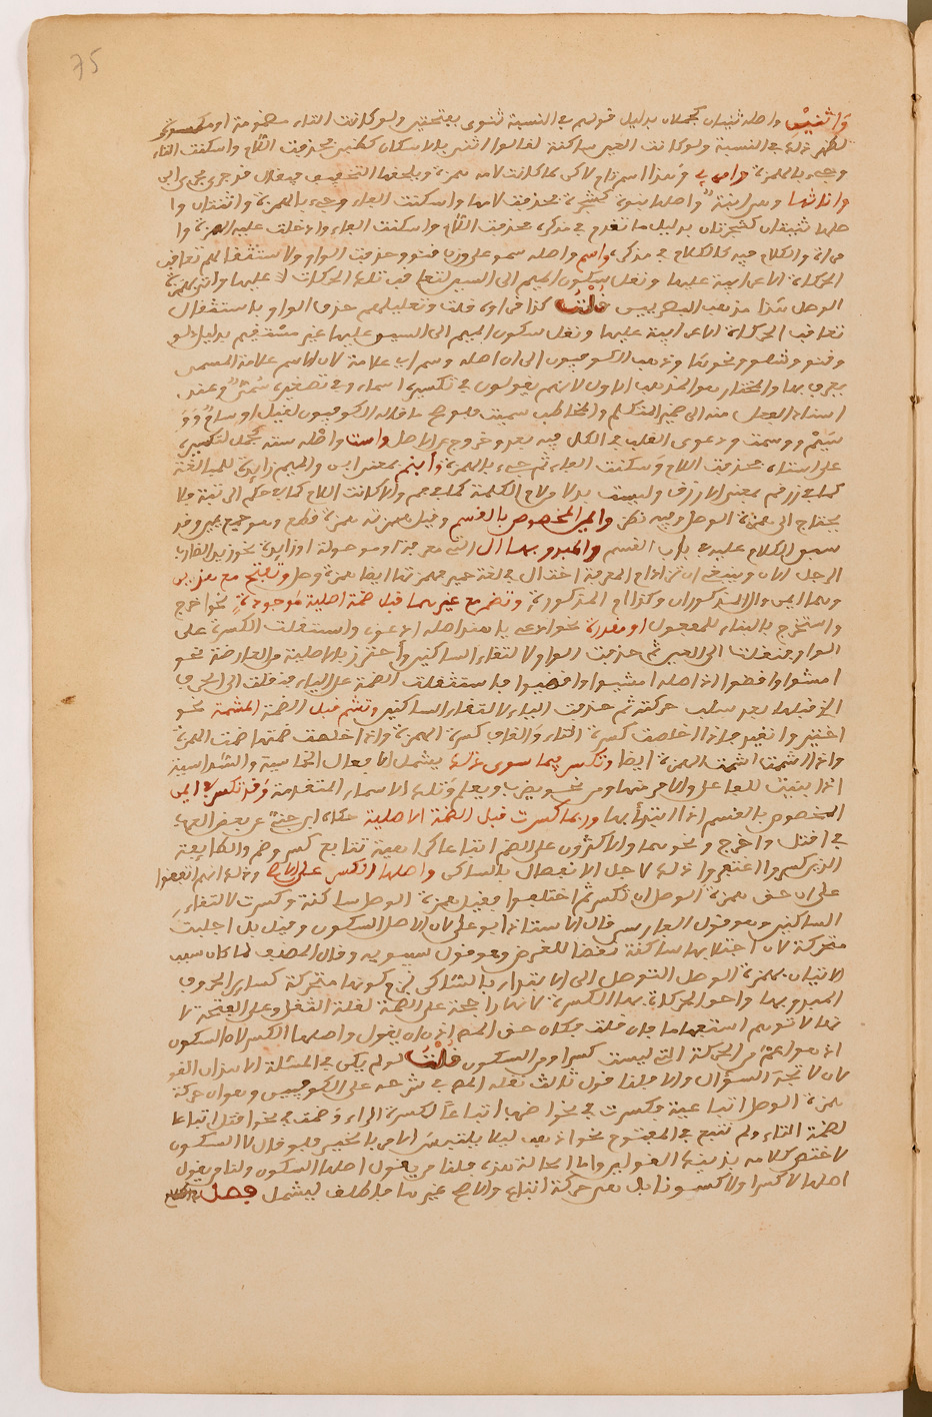 75
واثنين واصله ثنيان كجملان بدليل قولهم في النسبة ثنوي بفتحتين ولو كانت الثاء مضمومة او مكسورة
لظهر ذلك في النسبة ولو كانت العين ساكنة لقالوا اثني بالاسكان كظبي فحذفت اللام واسكنت الثاء
وجيء بالهمزة وامرئ وهذا اسم تام لاكن لما كانت لامه همزة ويلحقها التخفيف فيقال مر جرى مجرى ابن
وانثاها وهي ابنة واصلها بنوة كشجرة فحذفت لامها واسكنت الباء وجيء بالهمزة واثنتان وا
صلها ثنيتان كشجرتان بدليل ما تقدم في مذكره فحذفت اللام واسكنت الثاء وادخلت عليه الهمزة وا
مراة والكلام فيه كالكلام في مذكره واسم واصله سمو على وزن قنو وحذفت الواو لاستثقالهم تعاقب
الحركات الاعرابية عليها ونقل سكون الميم الى السين لتعاقب تلك الحركات عليها واتي بهمزة
الوصل هذا مذهب البصريين قلت كذا قرره قلت وتعليلهم حذف الواو باستثقال
تعاقب الحركات الاعرابية عليها ونقل سكون الميم الى السين عليها غير مستقيم بدليل دلو
وقنو ونضو ونحوها وذهب الكوفيون الى ان اصله وسم اي علامة لان الاسم علامة المسمى
يعرف بها والمختار هو المذهب الاول لانهم يقولون في تكسيره اسماء وفي تصغيره سمي وعند
اسناد الفعل منه الى ضمير المتكلم والمخاطب سميت فلو صح ما قاله الكوفيون لقيل اوسام و
سيم ووسمت ودعوى القلب في الكل فيه بعد وخروج عن الاصل واست واصله سته كجمل لتكسيره
على استاه فحذفت اللام وسكنت الفاء ثم جيء بالهمزة وابنم بمعنى ابن والميم زايدة للمبالغة
كما في زرقم بمعنى الازرق وليست بدلا من لام الكلمة كما في فم والا كانت اللام كما في حكم الثابتة فلا
يحتاج الى همزة الوصل وفيه نظر وايمن المخصوص بالقسم وقيل همزته همزة قطع وهو جمع يمين وقد
سبق الكلام عليه في باب القسم والمبدو بها ال التي معرفة او موصولة او زايدة نحو زيد الضارب
الرجل الان وينبغي ان تزاد ام المعرفة اخت ال في لغة حمير فهمزتها ايضا همزة وصل وتفتح مع هذين
وهما ايمن وال المذكوران وكذا ام المذكورة وتضم مع غيرهما قبل ضمة اصلية موجودة نحو اخرج
واستخرج بالبناء للمفعول او مقدرة نحو ادعي يا هند اصله ادعوي واستثقلت الكسرة على
الواو فنقلت الى العين ثم حذفت الواو لالتقاء الساكنين واحترز بالاصلية من العارضة نحو
امشوا واقضوا اذ اصله امشيوا واقضيوا فاستثقلت الضمة على الياء فنقلت الى الحرف
الذي قبلها بعد سلب حركته ثم حذفت الياء لالتقاء الساكنين وتشم قبل الضمة المشمة نحو
اختير وانقيد فاذا اخلصت كسرة التاء والقاف كسرت الهمزة واذا اخلصت ضمتها ضمت الهمزة
واذا اشمت اشمت الهمزة ايضا وتكسر فيما سوى ذلك يشمل الافعال الخماسية والسداسية
اذا بنيت للفاعل والامر منها ومن نحو يضرب ويعلم وتلك الاسماء المتقدمة وقد تكسر في ايمن
المخصوص بالقسم اذا ابتدأ بها وربما كسرت قبل الضمة الاصلية حكاه ابن جني عن بعض العرب
في اقتل واخرج ونحوهما والاكثرون على الضم اتباعا كراهية تتابع كسر وضم والكاتبة
وانما اغتفروا ذلك لاجل الانفصال بالساكن واصلها الكسر على الاصح وذلك انهم اتفقوا
على ان حق همزة الوصل ان تكسر ثم اختلفوا فقيل همزة الوصل ساكنة وكسرت لالتقاء
الساكنين وهو قول الفارسي قال الاستاذ ابو علي لان الاصل السكون وقيل بل اجلبت
متحركة لان اجتلابها ساكنة نقضا للغرض وهو قول سيبويه وقال المصنف لما كان سبب
الاتيان بهمزة الوصل التوصل الى الابتداء بالساكن لزم كونها متحركة كساير الحروف
المبدو بها واحق الحركات بها الكسرة لانها راجحة على الضمة لقلة الثقل وعلى الفتحة لا
نها لا توهم استفهاما فان قلت فكان حق المص اذن ان يقول واصلها الكسر لا السكون
اذ هو اعم من الحركة التي ليست كسرا ومن السكون قلت لو لم يكن في المسئلة الا هذان القو
لان لاتجه السؤال والا فلنا قول ثالث نقله المص في شرحه على الكوفيين وهو ان حركة
همزة الوصل اتباعية فكسرت في نحو اضرب اتباعا لكسرة الراء وضمت في نحو اقتل اتباعا
لضمة التاء ولم تتبع في المفتوح نحو اذهب ليلا يلتبس الامر بالخبر فلو قال لا السكون
لاختص كلامه بذينك القولين واما الحالة هذه فلنا من يقول اصلها السكون ولنا من يقول
اصلها لا كسرا ولا سكونا بل هي حركة اتباع والاصح غيرها فاطلق ليشمل فصل